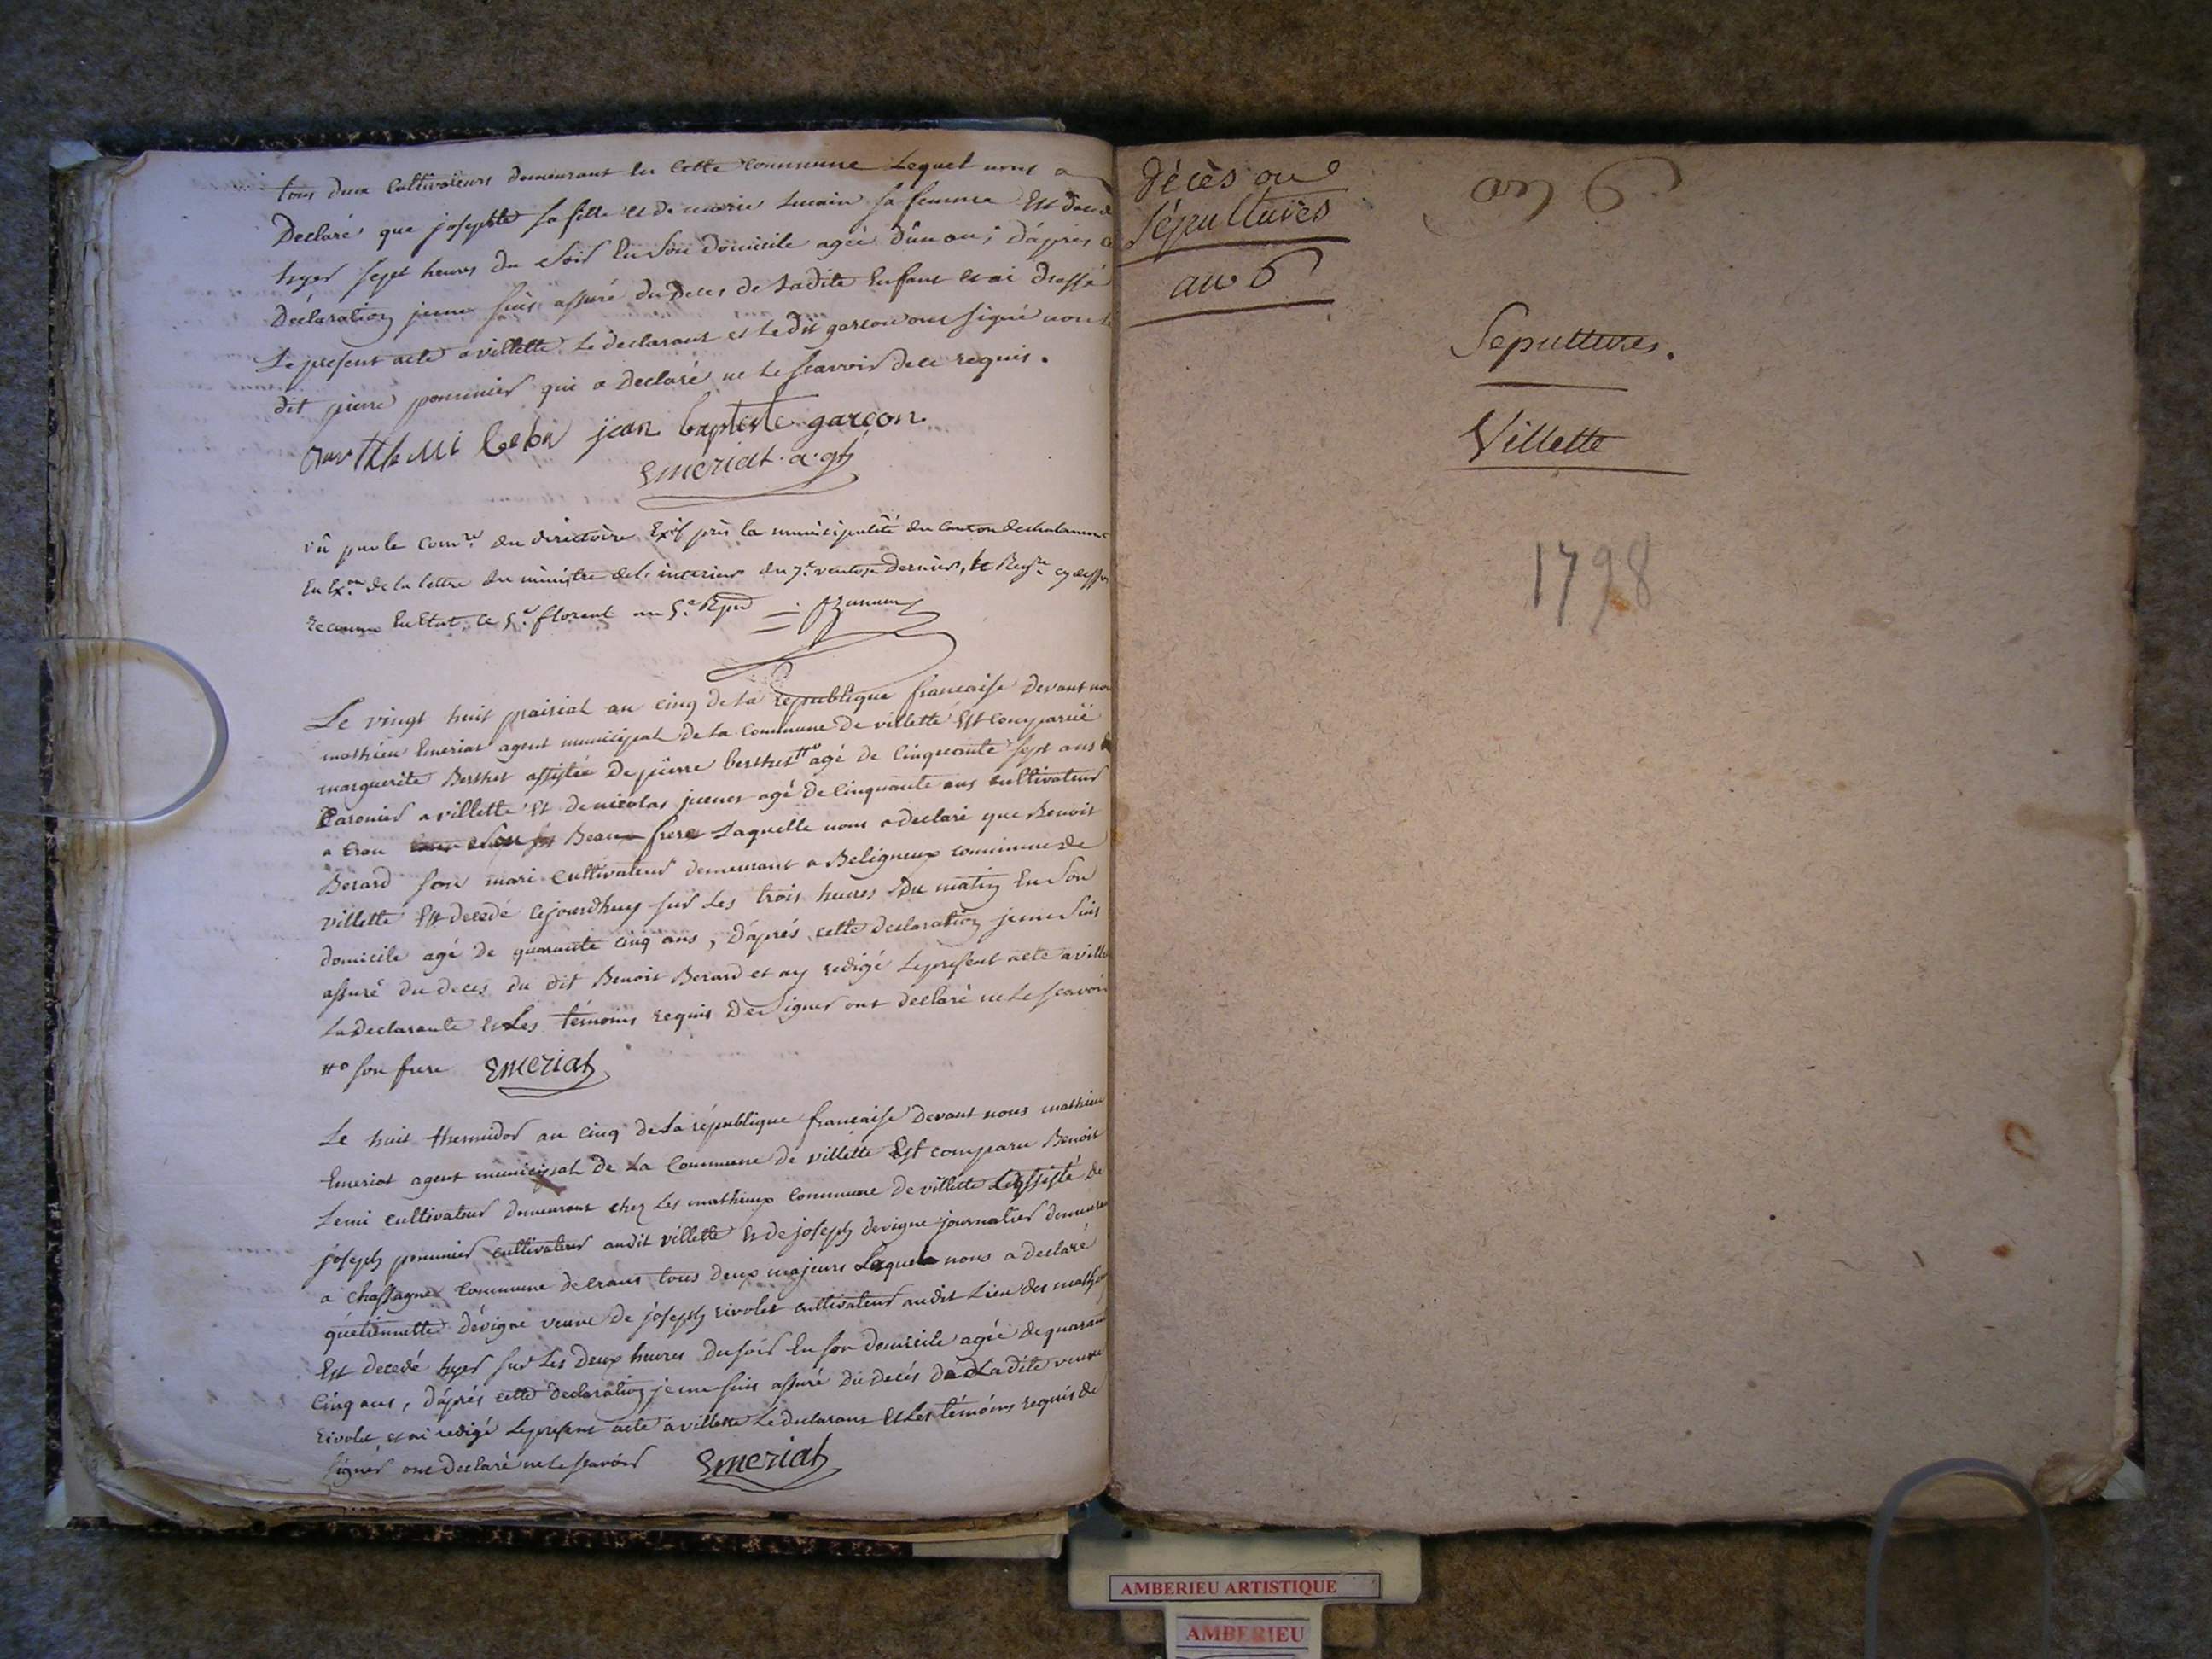 tous deux Cultivateurs demeurant en Cette Commune Lequel nous a
Declaré que josephte sa fille et de marie Lucain sa femme Est
hyer sept heures du soir En Son Domicile agée d'un an ; d'apres
Déclaration jeme suis assuré du Deces de Ladite Enfant et ai Dressé
Le present acte a villette Le declarant et Le Dit garcon ont signé non
dit pierre pommier qui a Declaré ne Le scavoir de ce requis.
jean baptiste garçon
Emeriat a. gt
vû par le Comre. du directoire Exif près la municipalité du Canton de
En Exon. de la lettre du ministre de l'interieur du 7e. ventose Dernier, le
Reconnu En Etat, ce 5e. floreal an 5e. Rpn
Le vingt huit prairial an cinq de La republique francaise Devant
mathieu Emeriat agent municipal De La Commune De villette Est Comparüe
marguerite Berthet assistée De pierre berthet #o agé de Cinquante sept ans
a villette Et de nicolas juenet agé de Cinquante ans cultivateur
a Cran Beau frere Laquelle nous a declaré que Benoit
Berard son mari Cultivateur Demeurant a Beligneux commune de
villette Est decedé cejourdhuy sur Les trois heures Du matin En Son
domicile agé De quarante cinq ans, D'aprés cette Declaration jeme Suis
assuré du deces du dit Benoit Berard et ay redigé Le present acte a
La declarante et Les témoins requis De Signer ont declaré ne Le scavoir
#o son frere Emeriat
Le huit thermidor an cinq de La république francaise Devant nous mathieu
Emeriat agent municipal De La Commune de villette Est comparu Benoit
Lemi cultivateur demeurant chez Les mathieux Commune de villette assisté de
joseph pommier cultivateur audit villette Et de joseph devigne journalier
a Chassagne Commune de crans tous deux majeurs Lequel nous a declaré
quetiennette dévigne veuve de joseph rivolet cultivateur audit Lieu des
Est decedé hyer sur Les Deux heures du soir En son domicile agée de
Cinq ans, D'aprés cette Declaration je me suis assuré du decés de La dite veuve
rivolet, et ai redigé Le present acte a villette Le declarant Et Les témoins requis de
signer ont Declaré ne Le scavoir Emeriat
Décès ou
Sépultures
an 6
an 6
Sepultures.
Villette
1798
AMBERIEU ARTISTIQUE
AMBERIEU